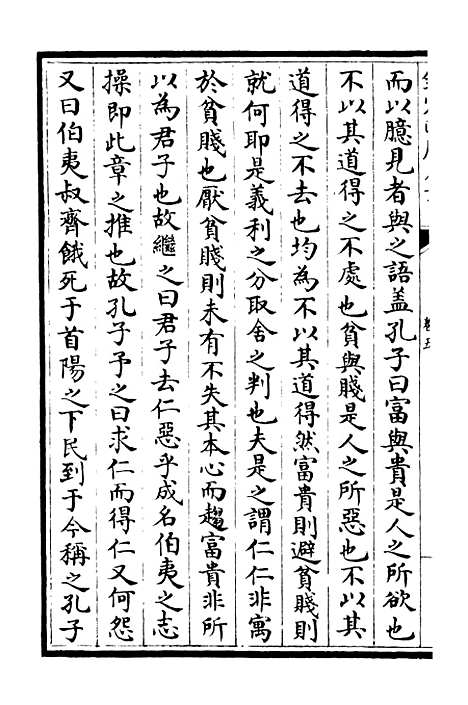 而以臆見者與之語盖孔子曰富與貴是人之所欲也
不以其道得之不處也貧與賤是人之所惡也不以其
道得之不去也均為不以其道得然富貴則避貧賤則
就何耶是義利之分取舍之判也夫是之謂仁仁非寓
於貧賤也厭貧賤則未有不失其本心而趨富貴非所
以為君子也故繼之曰君子去仁惡乎成名伯夷之志
操即此章之推也故孔子予之曰求仁而得仁又何怨
又曰伯夷叔齊餓死于首陽之下民到于今稱之孔子